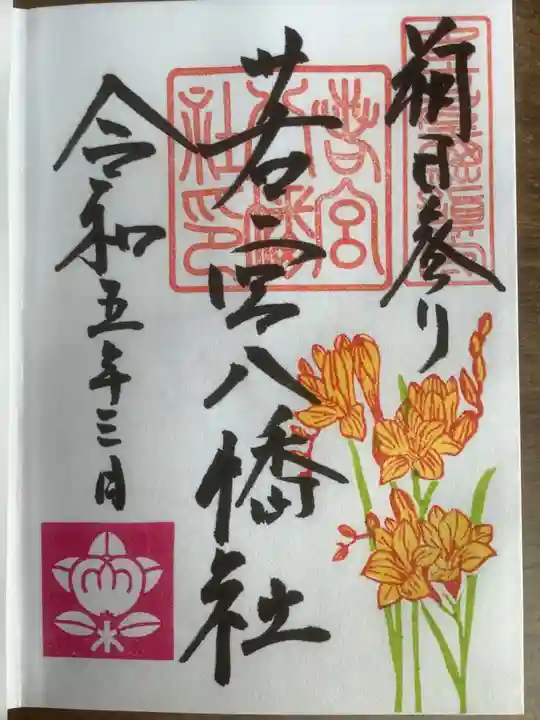 朔日参り
若宮八幡社
若宮八幡社印
令和五年三月